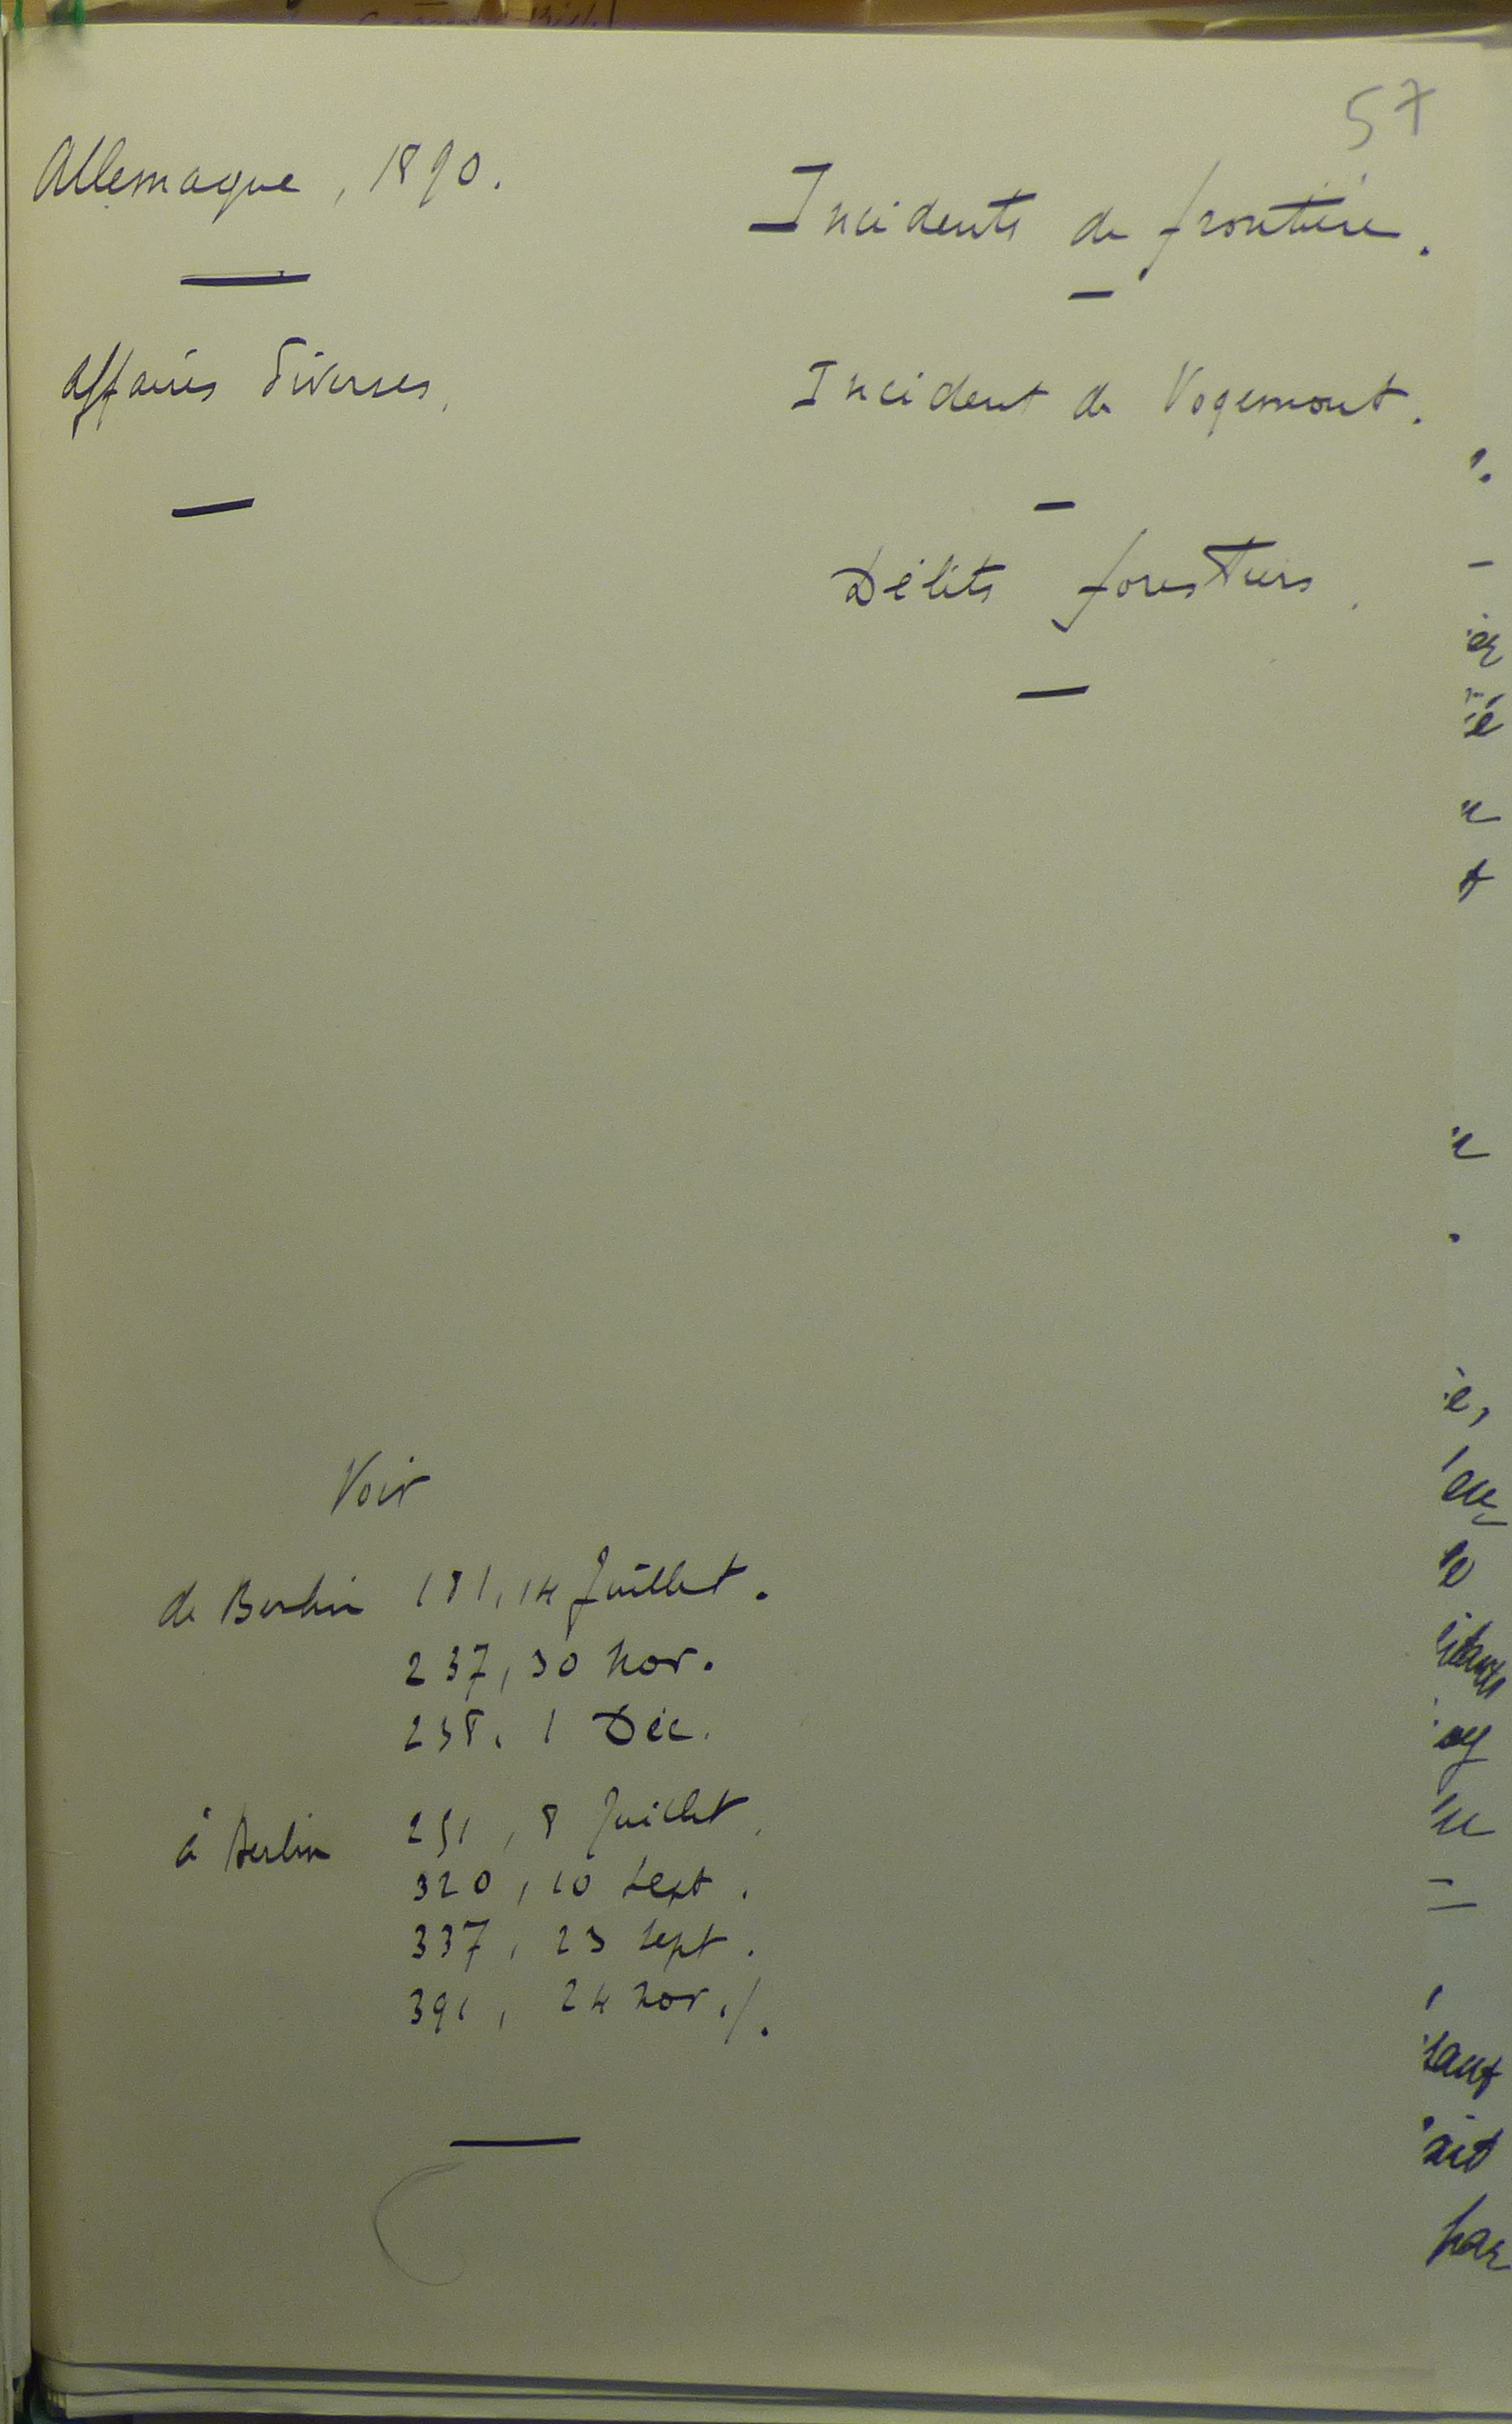 57
Allemagne, 1890.
Incidents de frontière.
Affaires diverses.
Incident de Vogemont.
Délits forestiers.
Voir
de Berlin 181, 14 Juillet.
237, 30 nov.
238, 1 Déc.
à Berlin 251, 8 Juillet.
320, 10 sept.
337, 23 sept.
391, 24 nov./.
sauf
ait
par